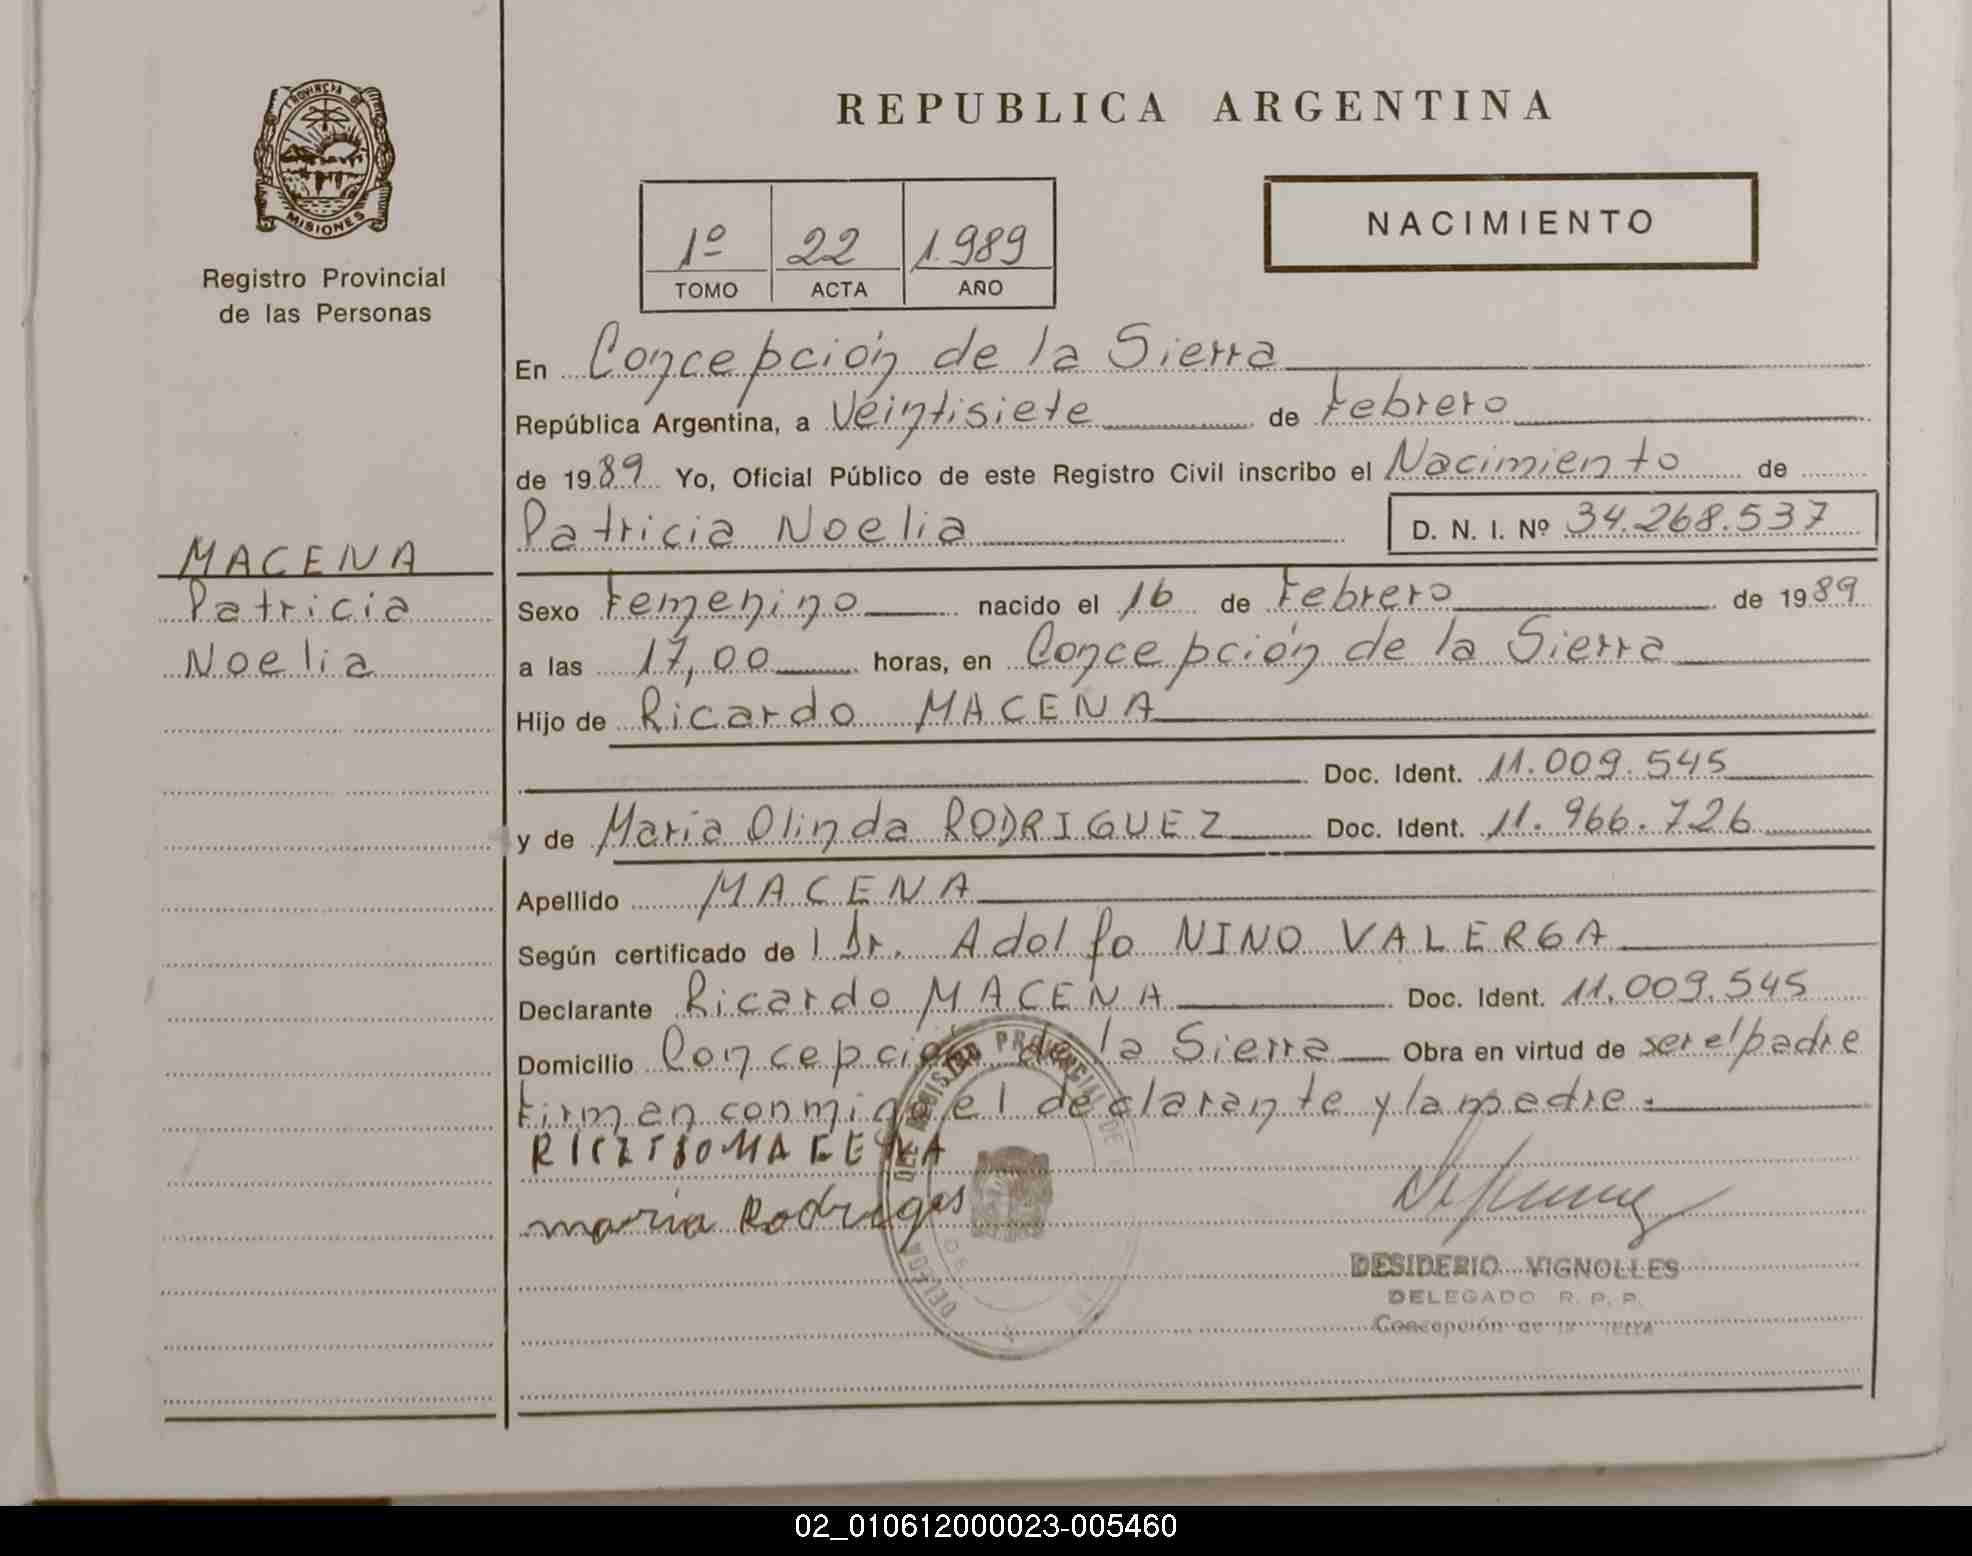 PROVINCIA DE
MISIONES
Registro Provincial
de las Personas
MACENA
Patricia
Noelia
REPUBLICA ARGENTINA
1º 22 1.989
TOMO ACTA AÑO
NACIMIENTO
En Concepción de la Sierra
República Argentina, a Veintisiete de Febrero
de 1989 Yo, Oficial Público de este Registro Civil inscribo el Nacimiento de
Patricia Noelia D. N. I. Nº 34.268.537
Sexo Femenino nacido el 16 de Febrero de 1989
a las 17,00 horas, en Concepción de la Sierra
Hijo de Ricardo MACENA
Doc. Ident. 11.009.545
y de Maria Olinda RODRIGUEZ Doc. Ident. 11.966.726
Apellido MACENA
Según certificado de l Dr. Adolfo NINO VALERGA
Declarante Ricardo MACENA Doc. Ident. 11.009.545
Domicilio Concepción de la Sierra Obra en virtud de ser el padre
Firman conmigo el declarante y la madre.
maria Rodrigues
DESIDERIO VIGNOLLES
DELEGADO R. P. P.
Concepción de la Sierra
DEL REGISTRO PROVINCIAL DE
02_010612000023-005460